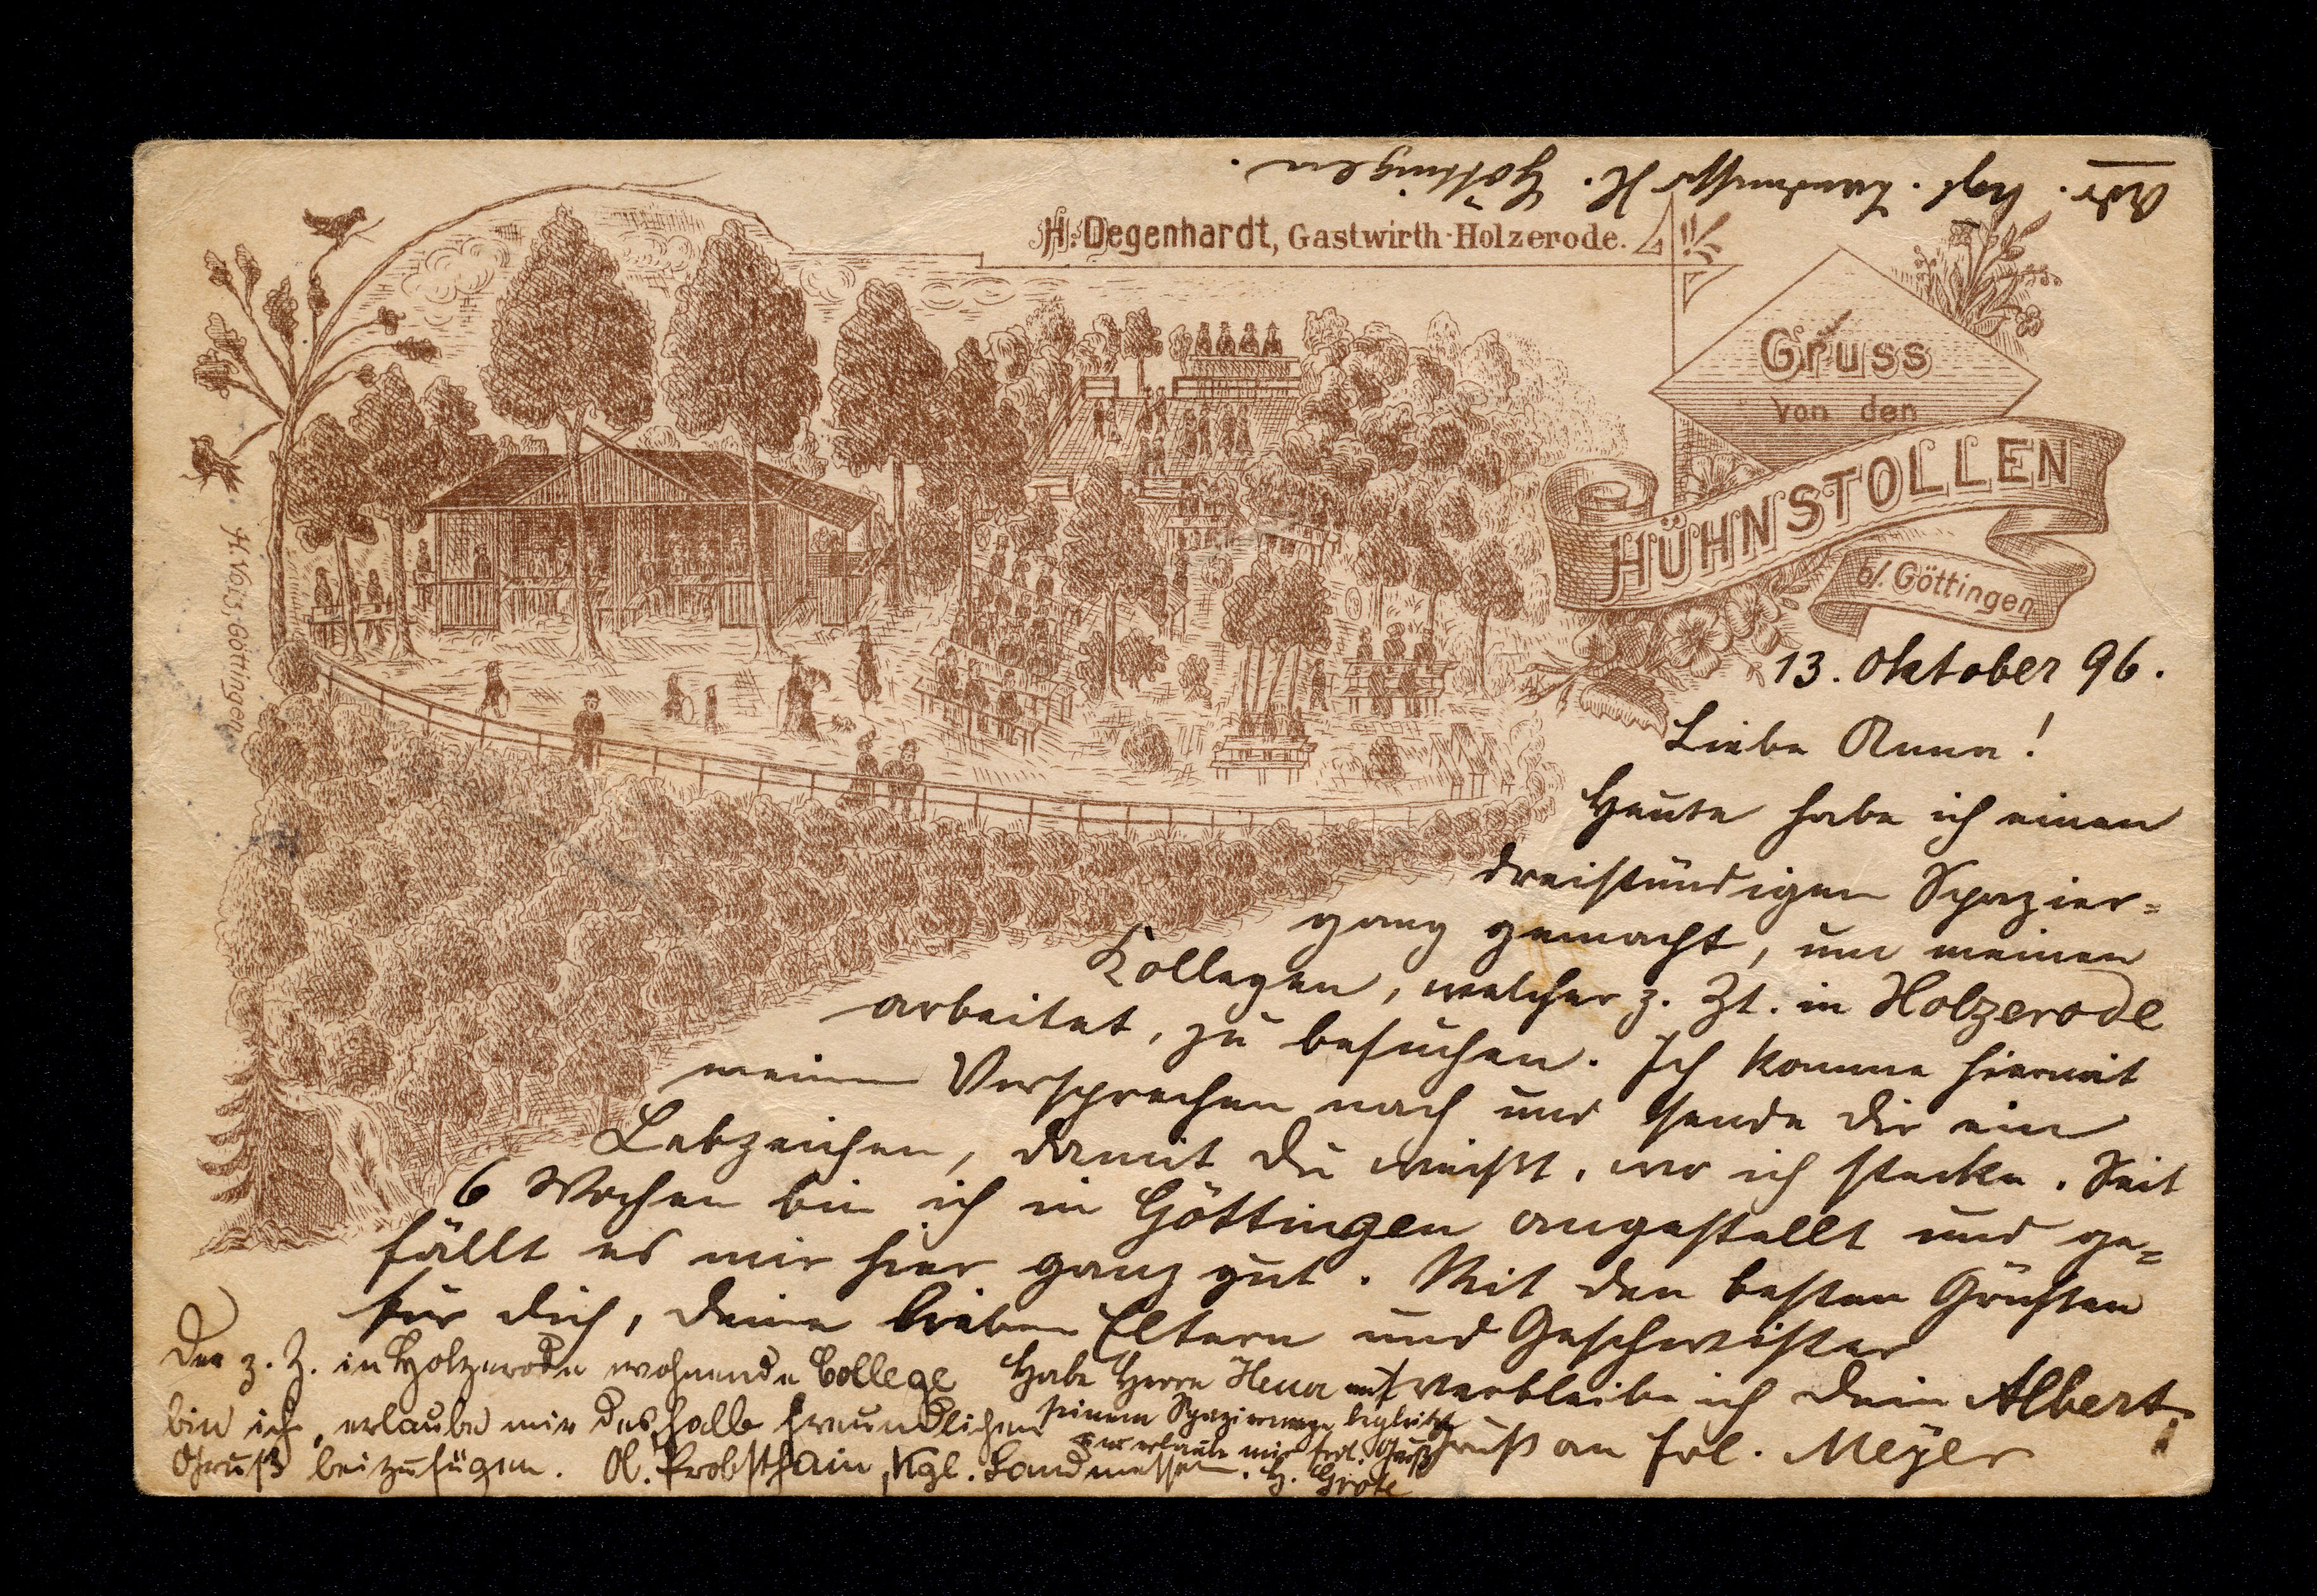 Adr. Kgl. Landmesser H. Göttingen.
H. Degenhardt, Gastwirth-Holzerode.
Gruss
von den
HÜHNSTOLLEN
b/. Göttingen
H. Voß, Göttingen
13. Oktober 96.
Liebe Anna!
Heute habe ich einen
dreistündigen Spazier=
gang gemacht, um meinen
Kollegen, welcher z. Zt. in Holzerode
arbeitet, zu besuchen. Ich komme hiermit
meinem Versprechen nach und sende Dir ein
Lebzeichen, damit Du weißt, wo ich stecke. Seit
6 Wochen bin ich in Göttingen angestellt und ge=
fällt es mir hier ganz gut. Mit den besten Grüßen
für Dich, Deine lieben Eltern und Geschwister
verbleibe ich Dein Albert.
Gruß an Frl. Meyer
Der z. Z. in Holzerode wohnende College
bin ich, erlaube mir deshalb freundlichen
Gruß beizufügen. A. Probsthain, Kgl. Landmesser.
Habe Herrn auf
seinem Spaziergange begleitet
erlaube mir frdl. Gruß
H. Grote